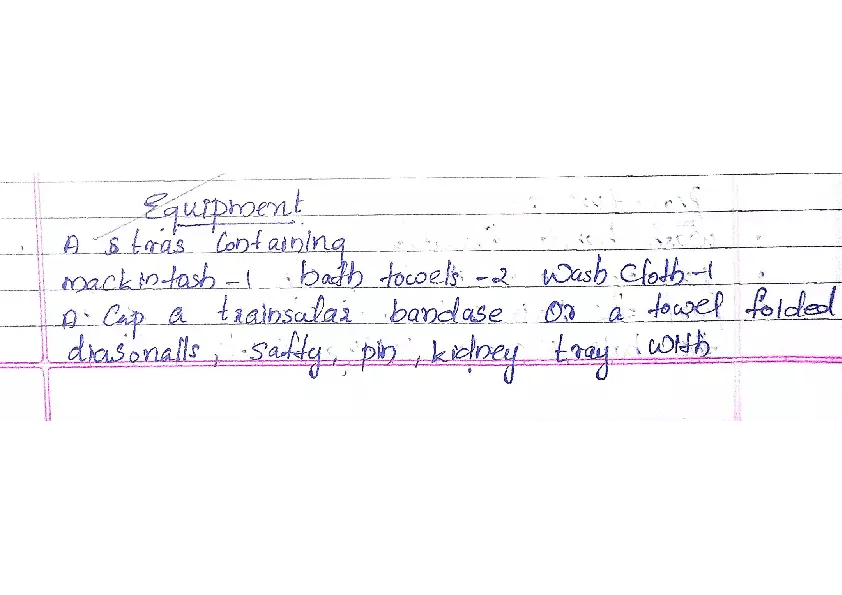 Equipment
A stras Containing
mackintash -1 bath towels -2 wash Cloth -1
A. Cap a trainsular bandase or a towel folded
diasonalls, saftly, pin, kidney tray with